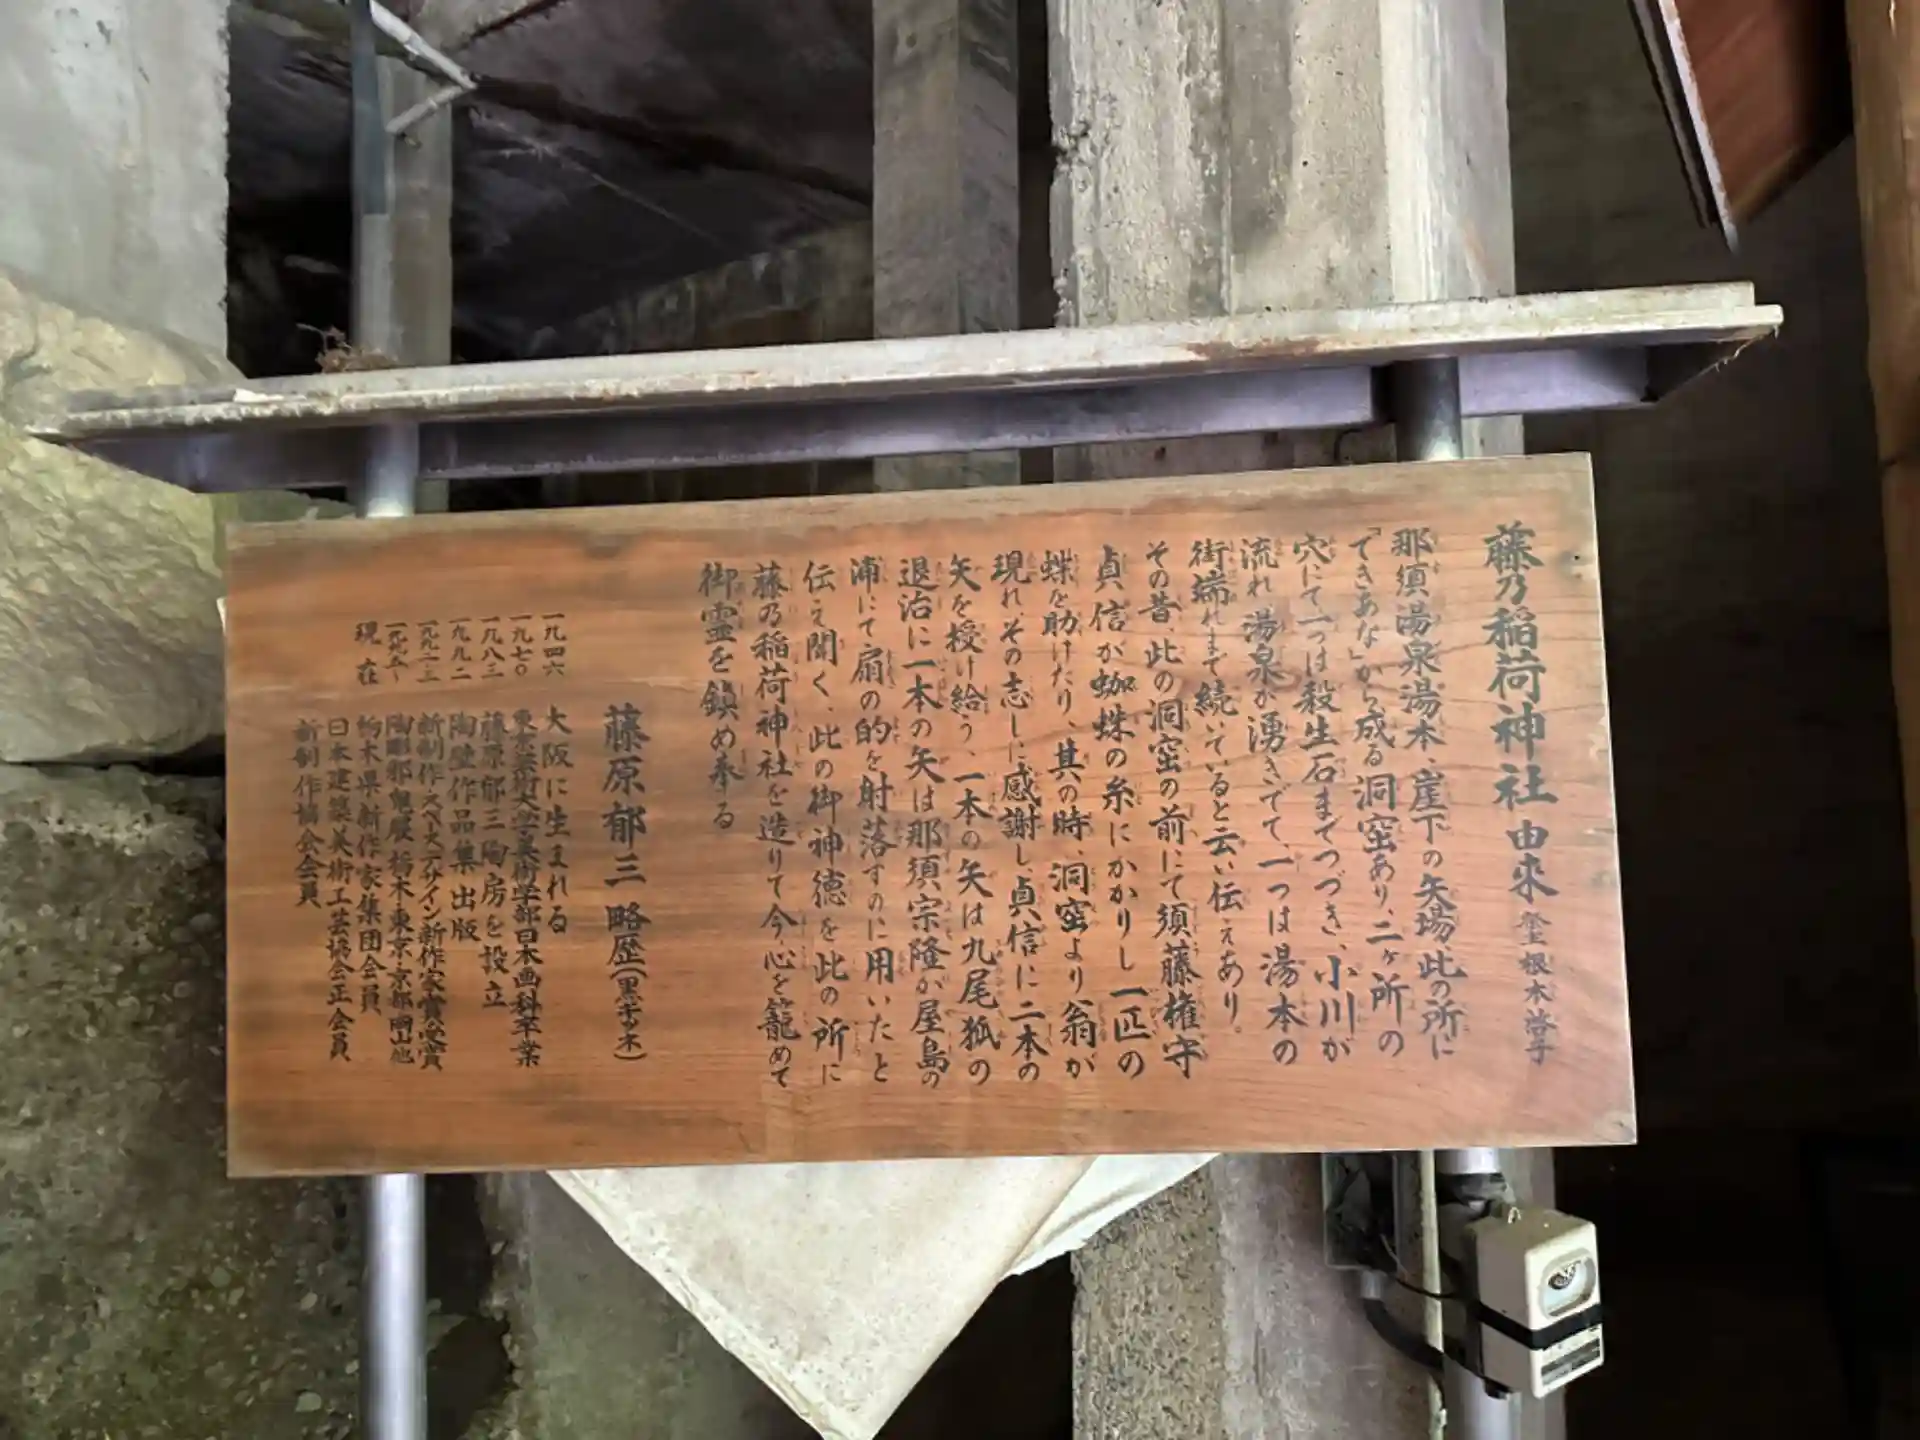 藤乃稲荷神社由来 根本啓子
那須湯泉湯本、崖下の矢場此の所に
「できあな」から成る洞窟あり、二ヶ所の
穴にて、一つは殺生石までつづき、小川が
流れ湯泉が湧きでて、一つは湯本の
街端れまで続いていると云い伝えあり。
その昔、此の洞窟の前にて須藤権守
貞信が蜘蛛の糸にかかりし一匹の
蝶を助けたり、其の時、洞窟より翁が
現れ、その志しに感謝し、貞信に二本の
矢を授け給う、一本の矢は九尾狐の
退治に一本の矢は那須宗隆が屋島の
浦にて扇の的を射落すのに用いたと
伝え聞く、此の御神徳を此の所に
藤乃稲荷神社を造りて今、心を籠めて
御霊を鎮め奉る
藤原郁三 略歴(黒キツネ)
一九四六 大阪に生まれる
一九七〇 東京芸術大学美術学部日本画科卒業
一九八三 藤原郁三陶房を設立
一九九二 陶壁作品集出版
一九九二・三 新制作・スペースデザイン新作家賞受賞
一九九五〜 陶彫邪鬼展 栃木・東京・京都・岡山他
現在 栃木県新作家集団会員
日本建築美術工芸協会正会員
新制作協会会員